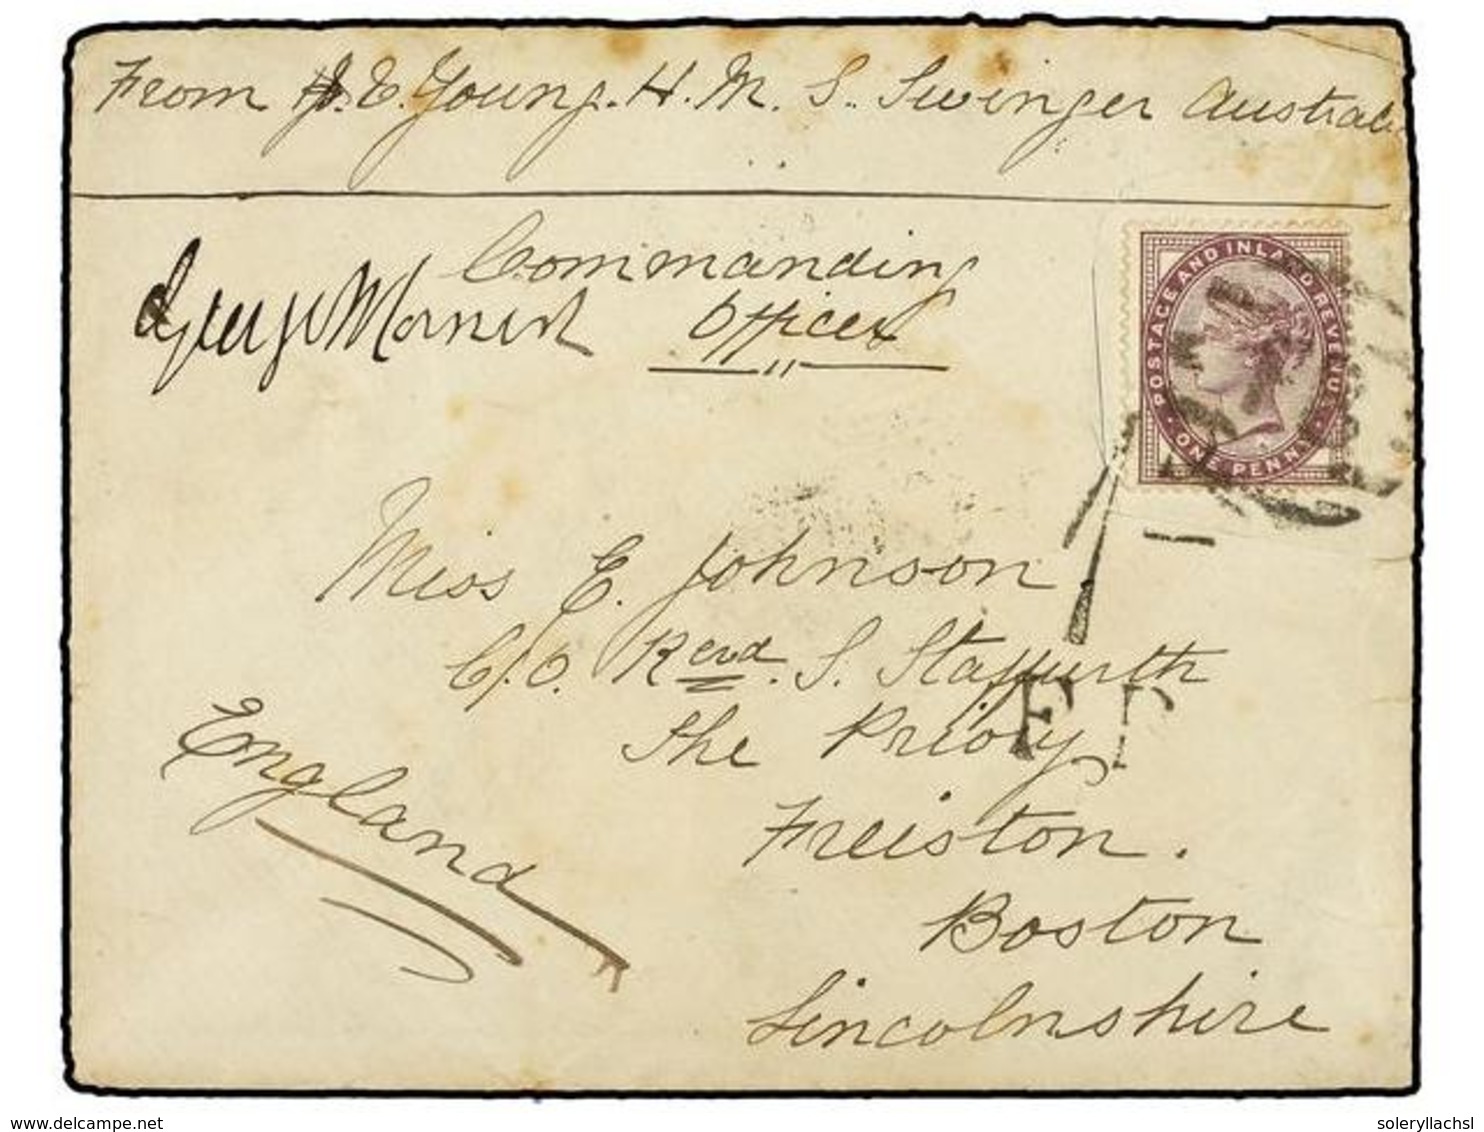 From J. E. Young. H. M. S. Swinger Austral
Commanding
Officer
POSTAGE AND INLAND REVENUE
ONE PENNY
Miss E. Johnson
C/O. Revd. S. Staffurth
The Priory
Freiston.
Boston
Lincolnshire
England
www.delcampe.net
soleryllachsl